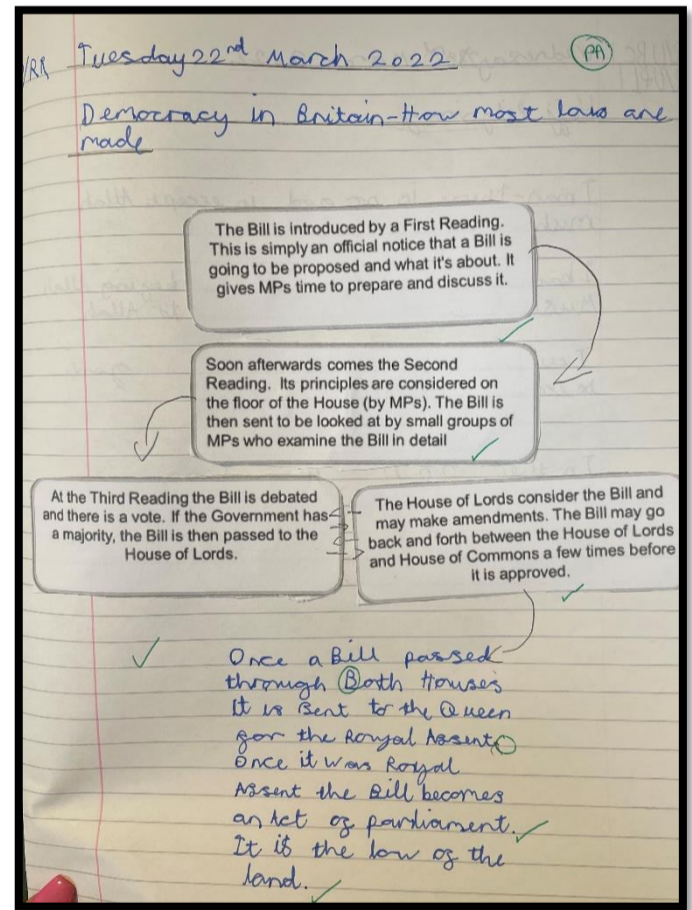 /RR Tuesday 22nd March 2022 PA
Democracy in Britain-How most laws are
made
The Bill is introduced by a First Reading.
This is simply an official notice that a Bill is
going to be proposed and what it's about. It
gives MPs time to prepare and discuss it.
Soon afterwards comes the Second
Reading. Its principles are considered on
the floor of the House (by MPs). The Bill is
then sent to be looked at by small groups of
MPs who examine the Bill in detail
At the Third Reading the Bill is debated
and there is a vote. If the Government has
a majority, the Bill is then passed to the
House of Lords.
The House of Lords consider the Bill and
may make amendments. The Bill may go
back and forth between the House of Lords
and House of Commons a few times before
it is approved.
Once a Bill passed
through Both Houses
It is sent to the Queen
for the Royal Assent
Once it was Royal
Assent the Bill becomes
an Act of parliament.
It is the law of the
land.